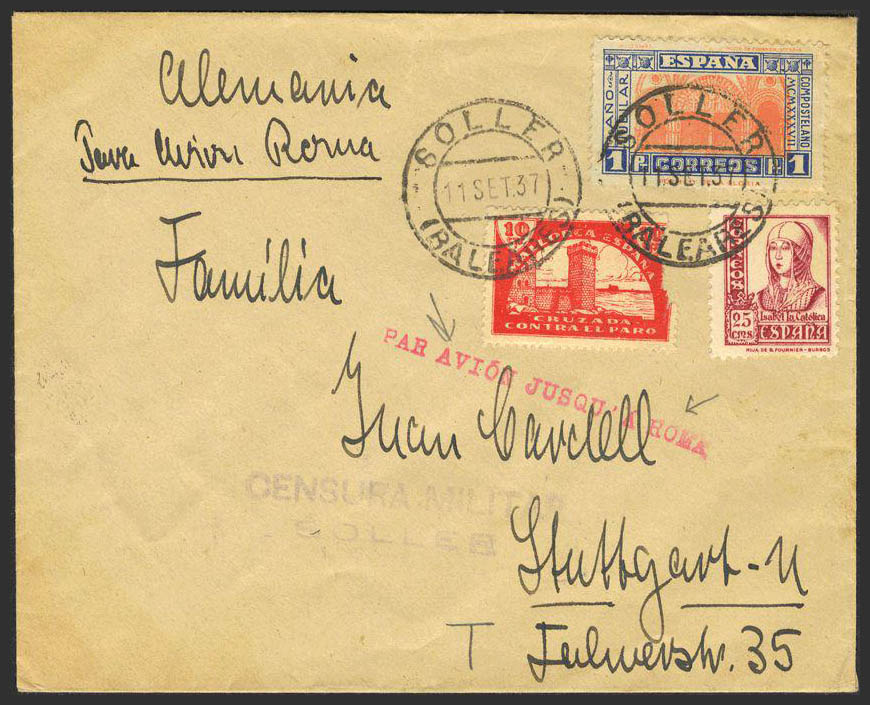 Alemania
Avion Roma
Familia
Juan Cardell
Stuttgart-N
35
T
ESPAÑA
AÑO
COMPOSTELANO
MCMXXXVII
1 P. CORREOS P. 1
SOLLER
11 SET. 37
(BALEARES)
SOLLER
11 SET. 37
(BALEARES)
10
MALLORCA ESPAÑA
CRUZADA
CONTRA EL PARO
CORREOS
25
CTMS
Isabel la Católica
ESPAÑA
HIJA DE B. FOURNIER - BURGOS
PAR AVIÓN JUSQU'A ROMA
CENSURA MILITAR
SOLLER